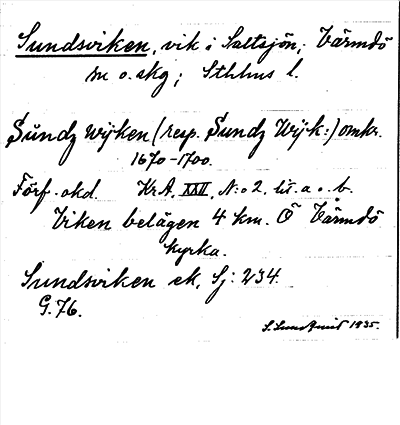 Sundsviken, vik i Saltsjön; Värmdö
sn o. skg; Sthlms l.
Sundz wijken (resp. Sundz Wijk:) omkr.
1670-1700.
Förf. okd. Kr.A. XXVI, N:o 2, lit. a o. b.
Viken belägen 4 km. Ö Värmdö
kyrka.
Sundsviken ek, Sj: 234.
G. 76.
S. Sundqvist 1935.